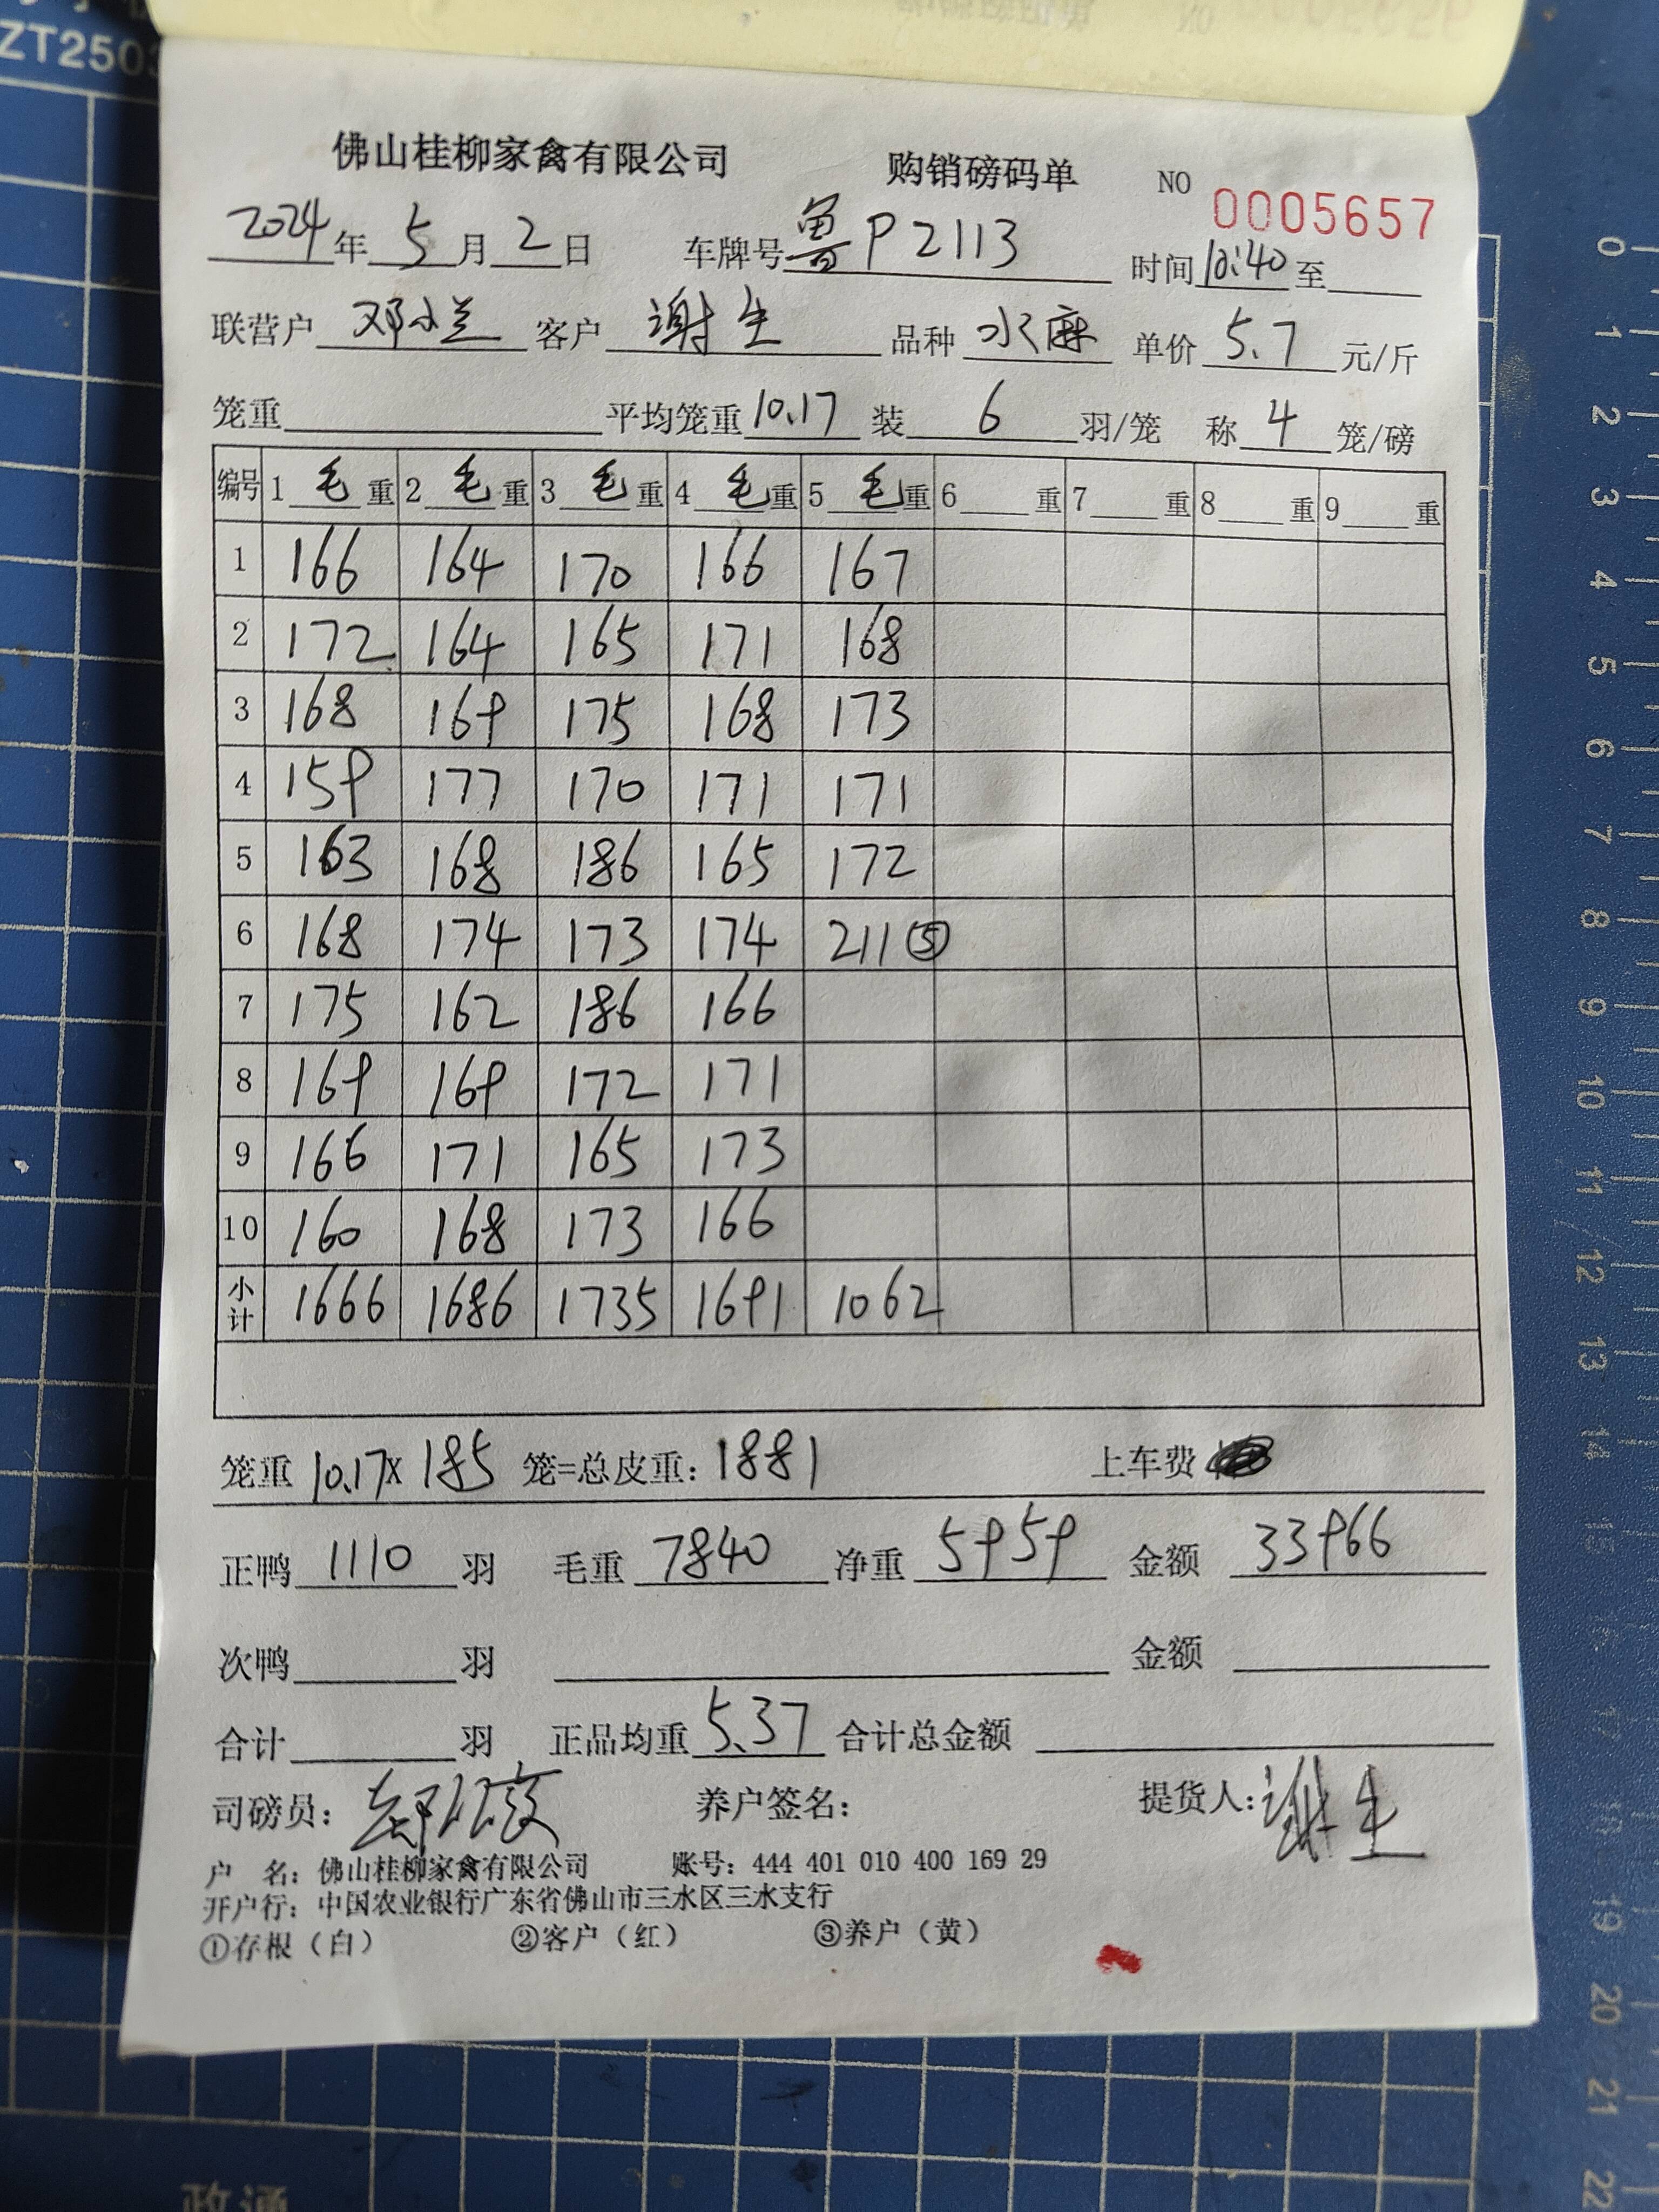 ZT250
佛山桂柳家禽有限公司 购销磅码单 NO 0005657
2024年5月2日 车牌号鲁P2113 时间10:40至
联营户 邓小兰 客户 谢生 品种 水麻 单价 5.7 元/斤
笼重 平均笼重10.17 装 6 羽/笼 称 4 笼/磅
编号 1 毛 重 2 毛 重 3 毛 重 4 毛 重 5 毛 重 6 重 7 重 8 重 9 重
1 166 164 170 166 167
2 172 164 165 171 168
3 168 169 175 168 173
4 159 177 170 171 171
5 163 168 186 165 172
6 168 174 173 174 211⑤
7 175 162 186 166
8 169 169 172 171
9 166 171 165 173
10 160 168 173 166
小计 1666 1686 1735 1691 1062
笼重 10.17X 185 笼=总皮重: 1881 上车费
正鸭 1110 羽 毛重 7840 净重 5959 金额 33966
次鸭 羽 金额
合计 羽 正品均重 5.37 合计总金额
司磅员: 养户签名: 提货人: 谢生
户 名: 佛山桂柳家禽有限公司 账号: 444 401 010 400 169 29
开户行: 中国农业银行广东省佛山市三水区三水支行
①存根（白） ②客户（红） ③养户（黄）
0
1
2
3
4
5
6
7
8
9
10
11
12
13
14
15
16
17
18
19
20
21
22